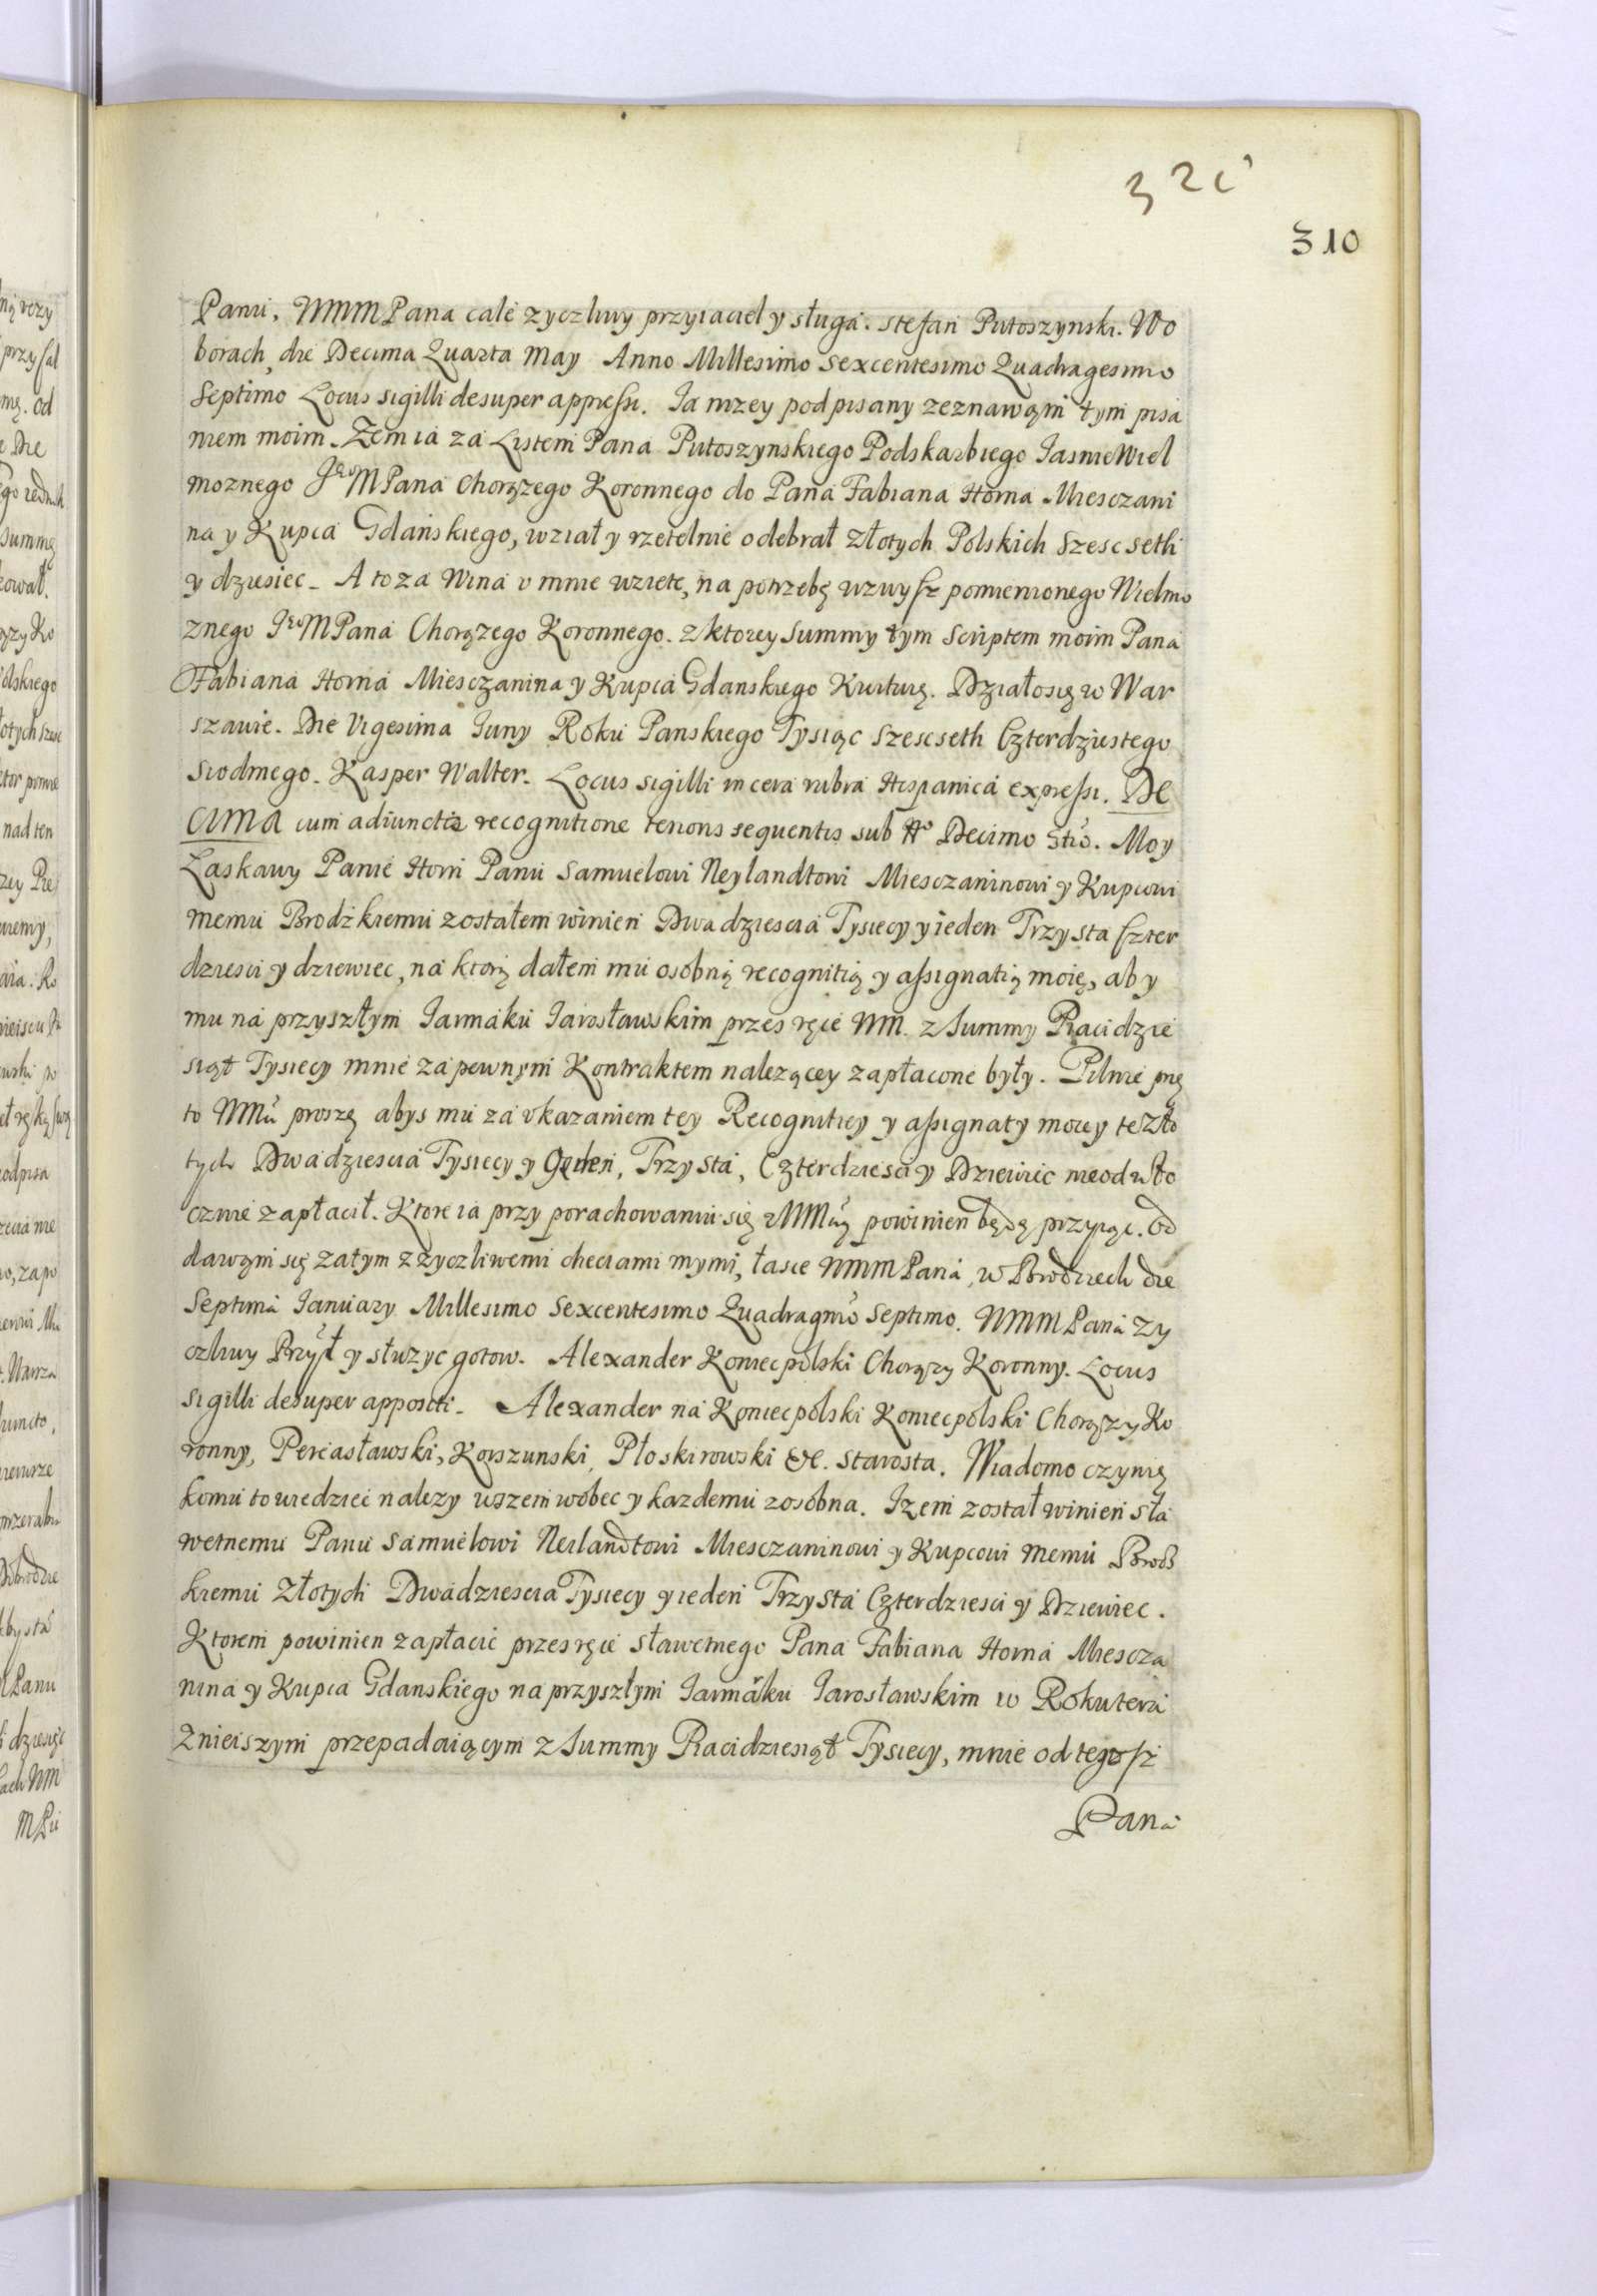 310
Panu, WMMPana cale zyczliwy przyiaciel y sługa. Stefan Putoszynski. Wo
borach, die Decima Quarta May Anno Millesimo Sexcentesimo Quadragesimo
Septimo Locus sigilli desuper appressi. Ia nizey podpisany zeznawam tym pisa
niem moim. Zem ia za Listem Pana Putoszynskiego Podskarbiego IasnieWiel
moznego JeoMPana Chorązego Koronnego do Pana Fabiana Horna Miesczani
na y Kupca Gdańskiego, wział y rzetelnie odebrał złotych Polskich Szescseth
y dziesiec. A to za Wina v mnie wziete, na potrzebę wzwysz pomienionego Wielmo
znego JeoMPana Chorązego Koronnego. z ktorey Summy tym Scriptem moim Pana
Fabiana Horna Miesczanina y Kupca Gdanskiego Kwituię. Działosię w War
szawie. Die Vigesima Iuny Roku Panskiego Tysiąc Szescseth Czterdziestego
Siodmego. Kasper Walter. Locus sigilli in cera rubra Hispanica expressi. De
cima cum adiuncta recognitione tenoris sequentis sub No Decimo 3tio. Moy
Łaskawy Panie Horn Panu Samuelowi Neylandtowi Miesczaninowi y Kupcowi
memu Brodzkiemu zostałem winien Dwadziescia Tysiecy y ieden Trzysta szter
dziesci y dziewiec, na ktorą dałem mu osobną recognitią y assignatią moię, aby
mu na przyszłym Iarmaku Iarosławskim przes ręce WM. z Summy Piacidzie
siąt Tysiecy mnie za pewnym Kontraktem nalezącey zapłacone były. Pilnie prze
to WMu proszę abys mu za vkazaniem tey Recognitiey y assignaty moiey te zło
tych Dwadziescia Tysiecy y Geden, Trzysta, Czterdziesci y Dziewiec nieodwło
cznie zapłacił. Ktore ia przy porachowaniu się z WMią powinien będę przyiąc. Od
dawam się zatym z zyczliwemi checiami mymi, łasce WMMPana, w Brodziech die
Septima Ianuary Millesimo Sexcentesimo Quadragmo Septimo. WMMPana zy
czliwy Przył y słuzyc gotow. Alexander Koniecpolski Chorązy Koronny. Locus
sigilli desuper appositi. Alexander na Koniecpolski Koniecpolski Chorązy Ko
ronny, Pereasławski, Korszunski, Płoskirowski &c. Starosta. Wiadomo czynię
komu to wiedziec nalezy wszem wobec y kazdemu zosobna. Izem został winien Sła
wetnemu Panu Samuelowi Neilandtowi Miesczaninowi y Kupcowi memu Brodz
kiemu Złotych Dwadziescia Tysiecy y ieden Trzysta Czterdziesci y Dziewiec.
Ktorem powinien zapłacic przes ręce Sławetnego Pana Fabiana Horna Miescza
nina y Kupca Gdanskiego na przyszłym Iarmaku Iarosławskim w Roku tera
znieiszym przepadaiącym z Summy Piacidziesiąt Tysiecy, mnie od tegosz
Pana